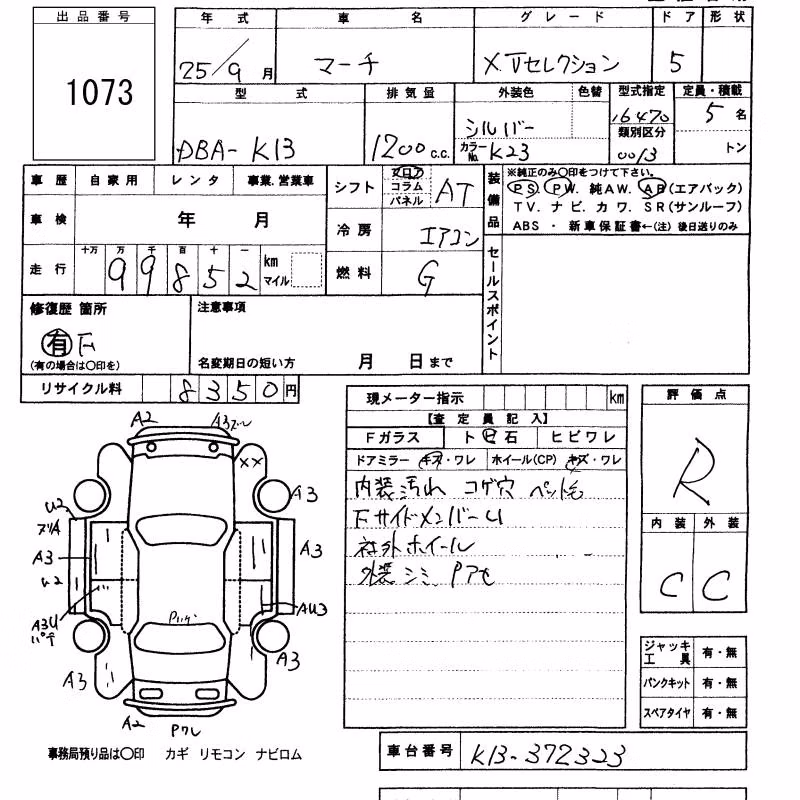 出品番号
1073
年式 車名 グレード ドア 形状
25/9月 マーチ XVセレクション 5
型式 排気量 外装色 色替 型式指定 定員・積載
DBA-K13 1200c.c. シルバー 16470 5名
カラーNo. K23 類別区分 0013 トン
車歴 自家用 レンタ 事業.営業車
車検 年 月
走行 十万 万 千 百 十 一
99852 km マイル
シフト フロア コラム パネル AT
冷房 エアコン
燃料 G
装備品
※純正のみ〇印をつけて下さい。
PS. PW. 純AW. AB(エアバック)
TV. ナビ. カワ. SR(サンルーフ)
ABS ・ 新車保証書←(注) 後日送りのみ
セールスポイント
修復歴 箇所
有 F
(有の場合は〇印を)
注意事項
名変期日の短い方 月 日まで
リサイクル料 8350円
現メーター指示 km
【査定員記入】
Fガラス ト ビ 石 ヒビワレ
ドアミラー キズ・ワレ ホイール(CP) キズ・ワレ
内装汚れ コゲ穴 ペット毛
FサイドメンバーU
社外ホイール
外装シミ Pアセ
評価点
R
内装 外装
C C
A2 A3ズレ
XX
A3
U2
ズリA
A3 A3
U2
AU3
A3U
パテ
A3
A3
A2
Pワレ
ジャッキ工具 有・無
パンクキット 有・無
スペアタイヤ 有・無
車台番号 K13-372323
事務局預り品は〇印 カギ リモコン ナビロム